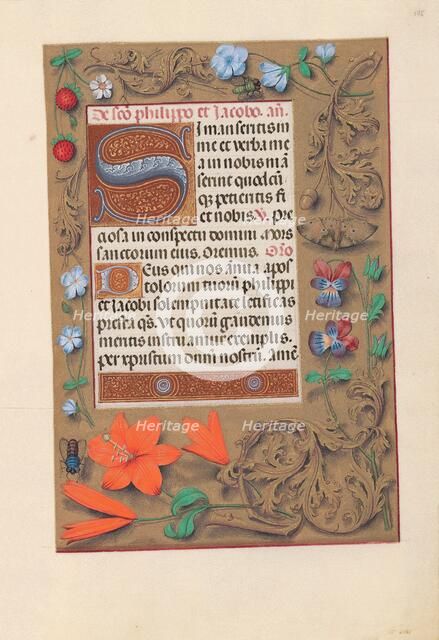 De sco philippo et Jacobo. añ.
Si manseritis in
me et verba me
a in nobis mã
serint quodcũ
qz petieritis fi
et nobis. V. Pre
ciosa in conspectu domini Mors
sanctorum eius. Oremus. Oro
Deus qui nos ãnua apos
tolorum tuorum philippi
et Jacobi solempnitate letificas
presta qs. Vt quorum gaudemus
meritis instruamur exemplis.
per xpristum dnm nostrũ. amẽ
Heritage
Heritage
Heritage
Heritage
Heritage
Heritage
Heritage
Heritage